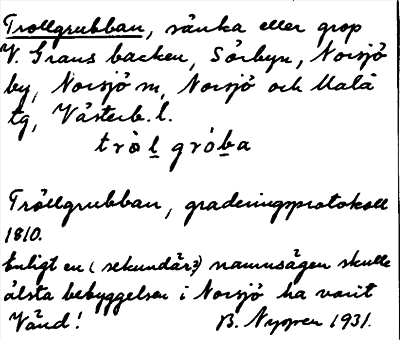 Trollgrubban, sänka eller grop
V. Grans backen, Sörbyn, Norsjö
by, Norsjö sn, Norsjö och Malå
tg, Västerb. l.
tròl gróba
Tröllgrubban, graderingsprotokoll
1810.
Enligt en (sekundär?) namnsägen skulle
älsta bebyggelsen i Norsjö ha varit
Vänd! B. Nyman 1931.